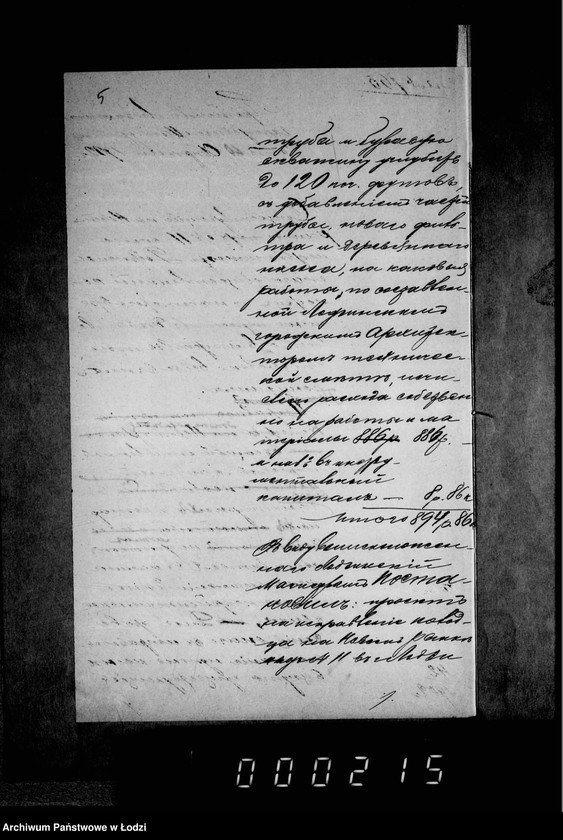 5
труба и буравую
скважину углубить
до 120 пог. футовъ,
съ добавленіемъ частей
трубы, новаго филь-
тра и деревяннаго
насоса, на каковыя
работы, по составлен-
ной Лодзинскимъ
городскимъ Архитек-
торомъ техничес-
кой смѣтѣ, исчи-
слено расхода собствен
но на работы и ма
теріалы 886р. 886р. —
и на 1% въ инстру-
ментальный
капиталъ — 8р. 86к
Итого 894р. 86к
Въ виду вышеизложен-
наго Лодзинскій
Магистратъ Поста-
новилъ: проектъ
на исправленіе колод-
ца на Новомъ Рынкѣ
№ 11 въ Лодзи
000215
Archiwum Państwowe w Łodzi